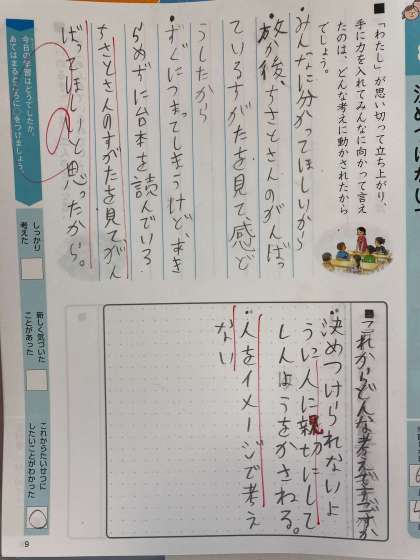 ■「わたし」が思い切って立ち上がり、
手に力を入れてみんなに向かって言え
たのは、どんな考えに動かされたから
でしょう。
・みんなに分かってほしいから
・放か後、ちさとさんのがんばっ
ているすがたを見て感ど
うしたから
・すぐにつまってしまうけど、あき
らめずに台本を読んでいる
ちさとさんのすがたを見て、がん
ばってほしいと思ったから。
■これからどんな考えですごすか
・決めつけられないよ
うに人に親切にして
しんようをかさねる。
・人をイメージで考え
ない
今日の学習はどうでしたか。
あてはまるところに○をつけましょう。
しっかり
考えた
新しく気づいた
ことがあった
これからたいせつに
したいことがわかった
9